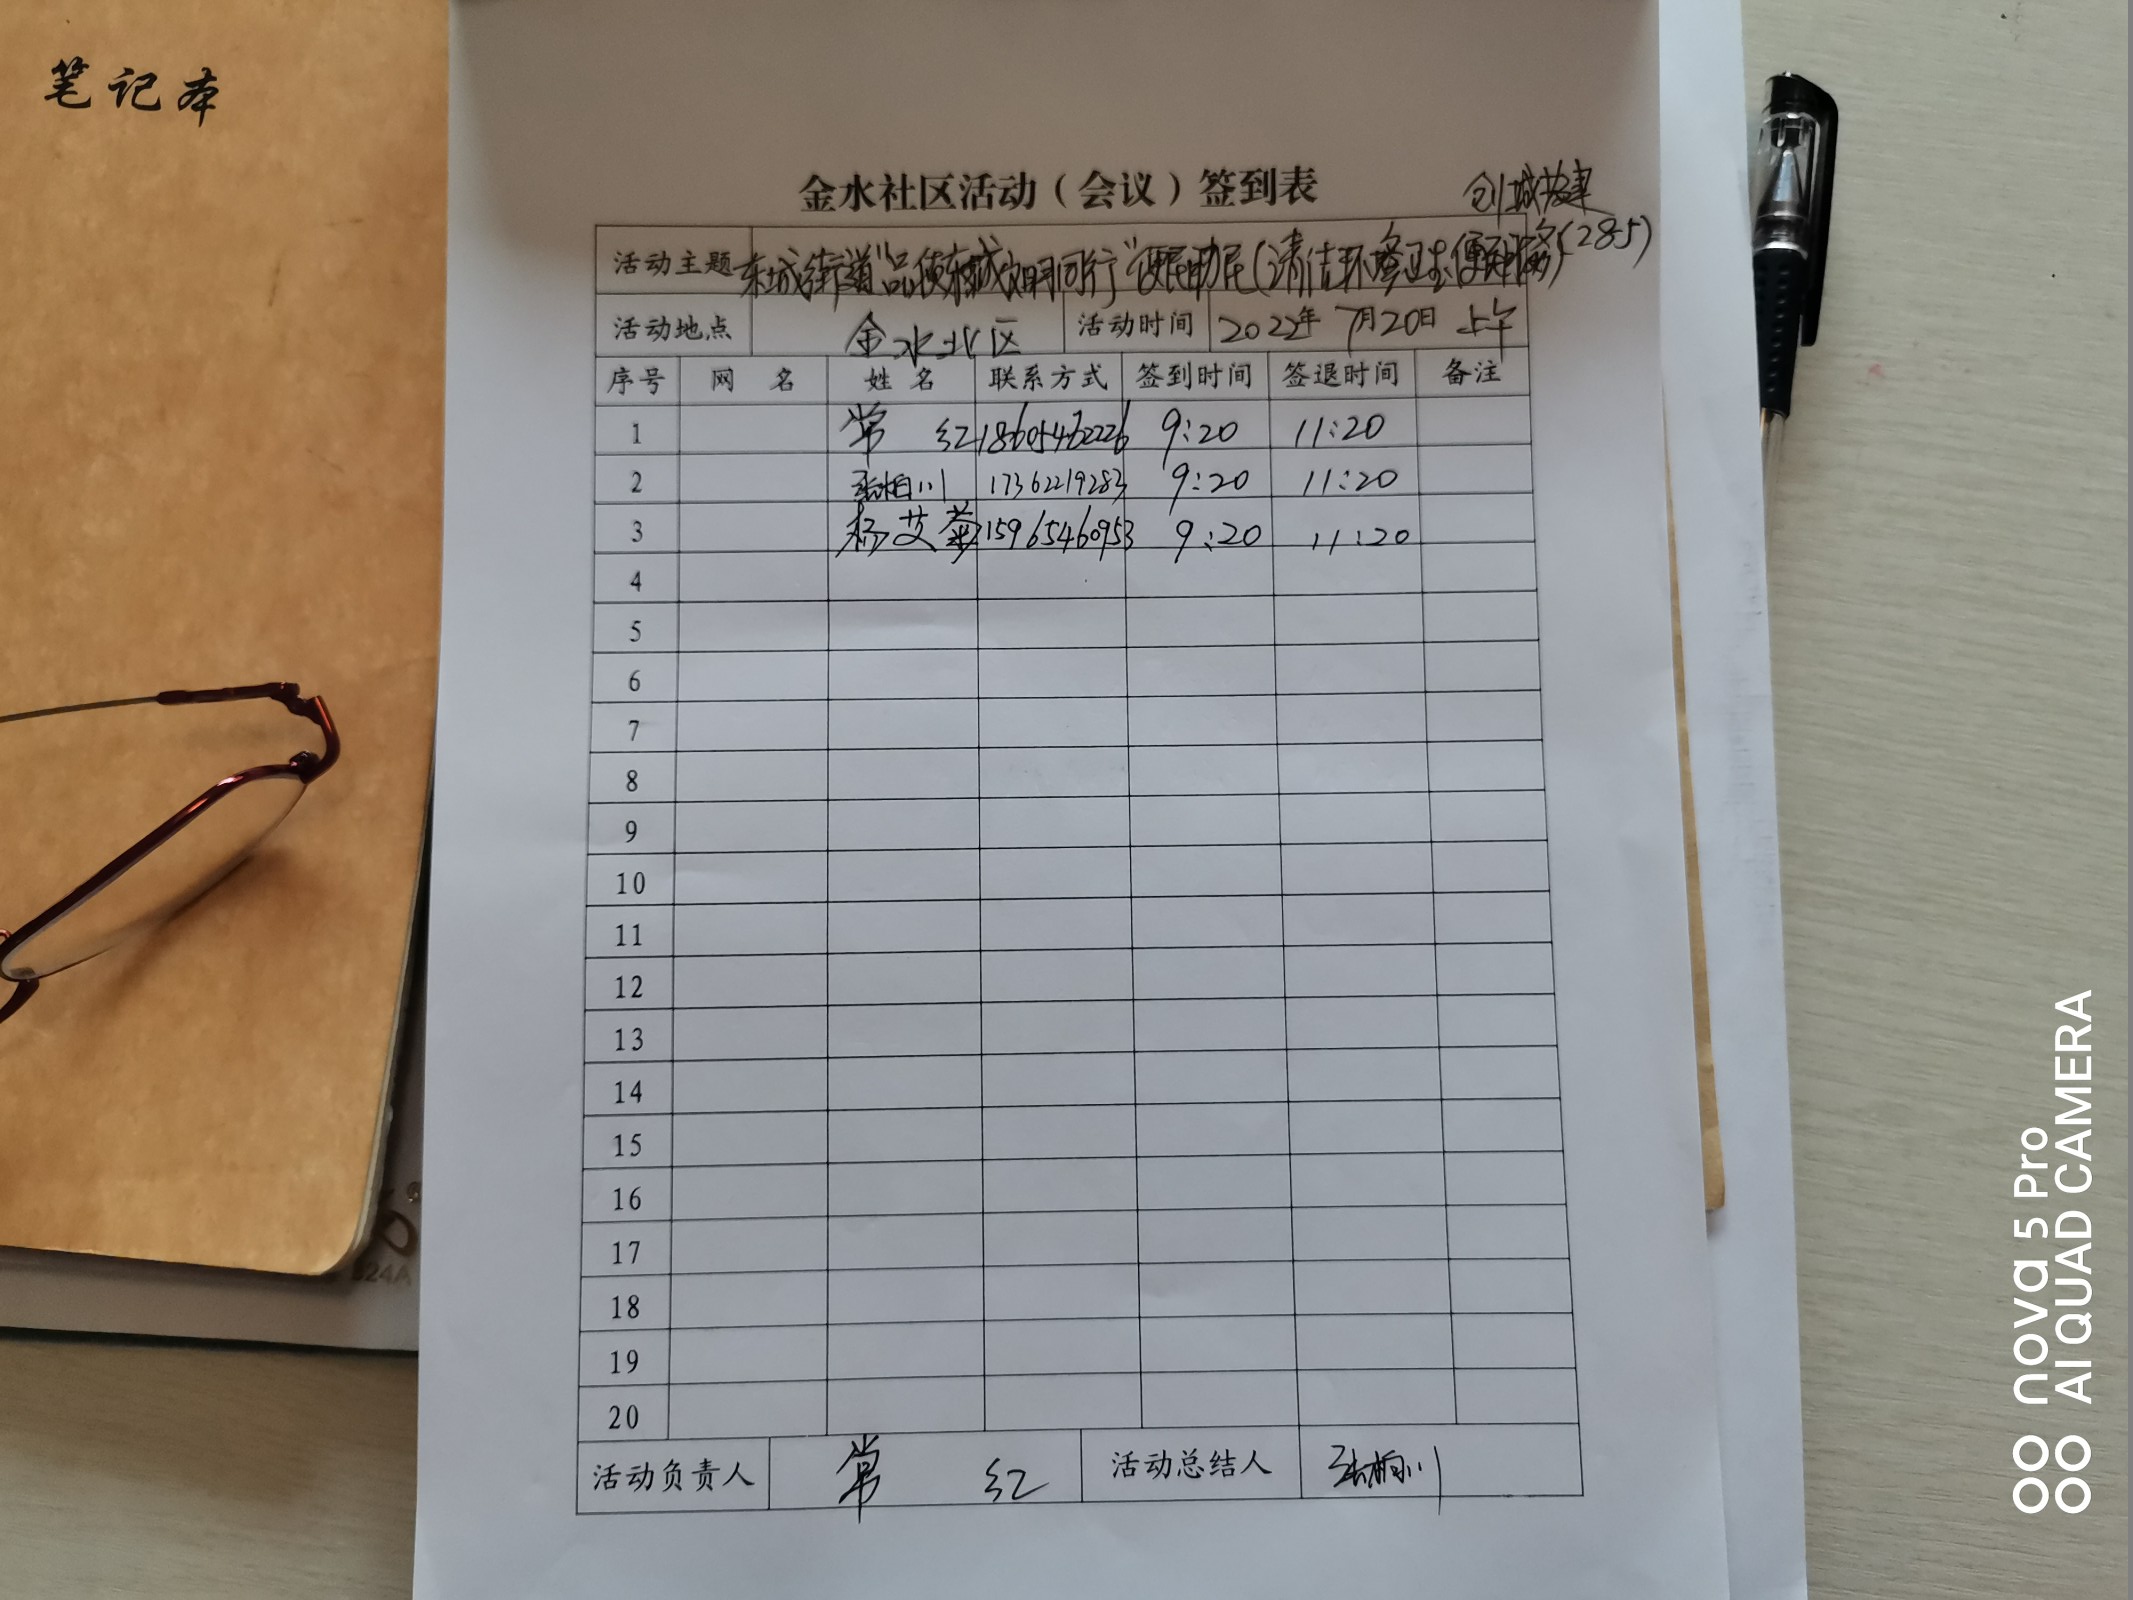 笔记本
金水社区活动（会议）签到表
创城
活动主题 东城街道“品使东城文明同行”便民助民(清洁环境卫生便民服务(28-5)
活动地点 金水北区 活动时间 2022年7月20日 上午
序号 网 名 姓 名 联系方式 签到时间 签退时间 备注
1 常 红 18605462226 9:20 11:20
2 张相川 17362219283 9:20 11:20
3 杨艾菊 15965460953 9:20 11:20
4
5
6
7
8
9
10
11
12
13
14
15
16
17
18
19
20
活动负责人 常 红 活动总结人 张相川
824A
nova 5 Pro
AI QUAD CAMERA